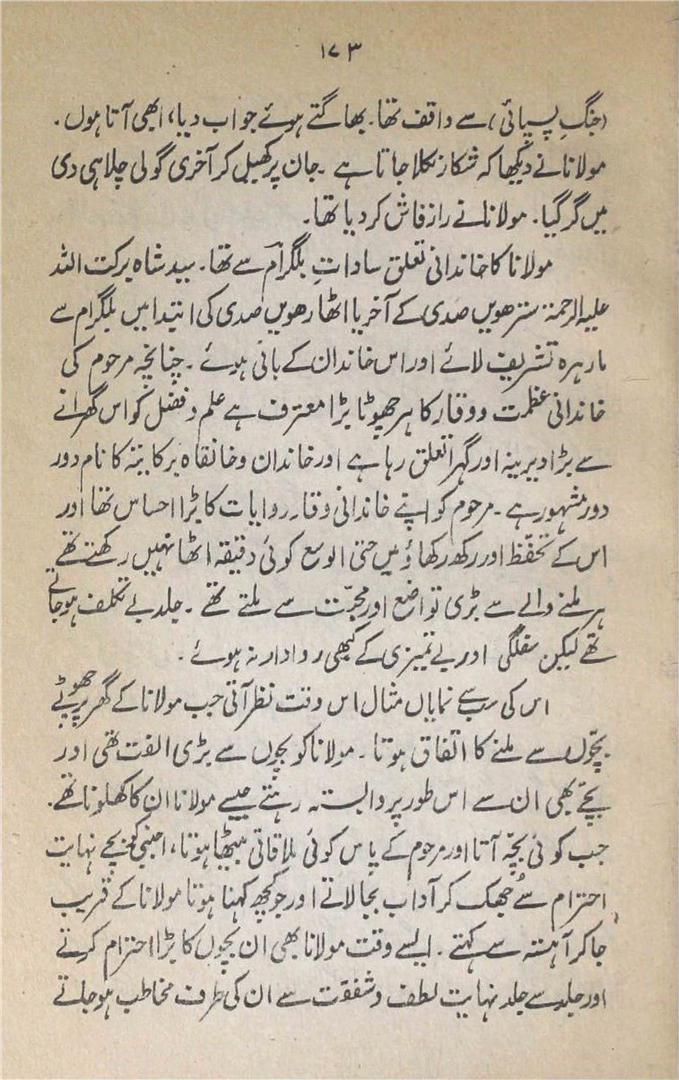 ۱۷۳
(جنگِ پسپائی) سے واقف تھا۔ بھاگتے ہوئے جواب دیا، ابھی آتا ہوں۔
مولانا نے دیکھا کہ شکار نکلا جاتا ہے۔ جان پر کھیل کر آخری گولی چلا ہی دی
میں گر گیا۔ مولانا نے راز فاش کر دیا تھا۔
مولانا کا خاندانی تعلق ساداتِ بلگرام سے تھا۔ سید شاہ برکت اللہ
علیہ الرحمۃ سترھویں صدی کے آخر یا اٹھارھویں صدی کی ابتدا میں بلگرام سے
مارہرہ تشریف لائے اور اس خاندان کے بانی ہوئے۔ چنانچہ مرحوم کی
خاندانی عظمت و وقار کا ہر چھوٹا بڑا معترف ہے علم و فضل کو اس گھرانے
سے بڑا دیرینہ اور گہرا تعلق رہا ہے اور خاندان و خانقاہ برکاتیہ کا نام دور
دور مشہور ہے۔ مرحوم کو اپنے خاندانی وقار روایات کا بڑا احساس تھا اور
اس کے تحفّظ اور رکھ رکھاؤ میں حتی الوسع کوئی دقیقہ اٹھا نہیں رکھتے تھے
ہر ملنے والے سے بڑی تواضع اور محبّت سے ملتے تھے۔ جلد بے تکلف ہو جاتے
تھے لیکن سفلگی اور بے تمیزی کے کبھی روادار نہ ہوئے۔
اس کی سب سے نمایاں مثال اس وقت نظر آتی جب مولانا کے گھر پر چھوٹے
بچّوں سے ملنے کا اتفاق ہوتا۔ مولانا کو بچوں سے بڑی الفت تھی اور
بچّے بھی ان سے اس طور پر وابستہ رہتے جیسے مولانا ان کا کھلونا تھے۔
جب کوئی بچّہ آتا اور مرحوم کے پاس کوئی ملاقاتی بیٹھا ہوتا، اجنبی کو بچے نہایت
احترام سے جھک کر آداب بجا لاتے اور جو کچھ کہنا ہوتا مولانا کے قریب
جا کر آہستہ سے کہتے۔ ایسے وقت مولانا بھی ان بچوں کا بڑا احترام کرتے
اور جلد سے جلد نہایت لطف و شفقت سے ان کی طرف مخاطب ہو جاتے